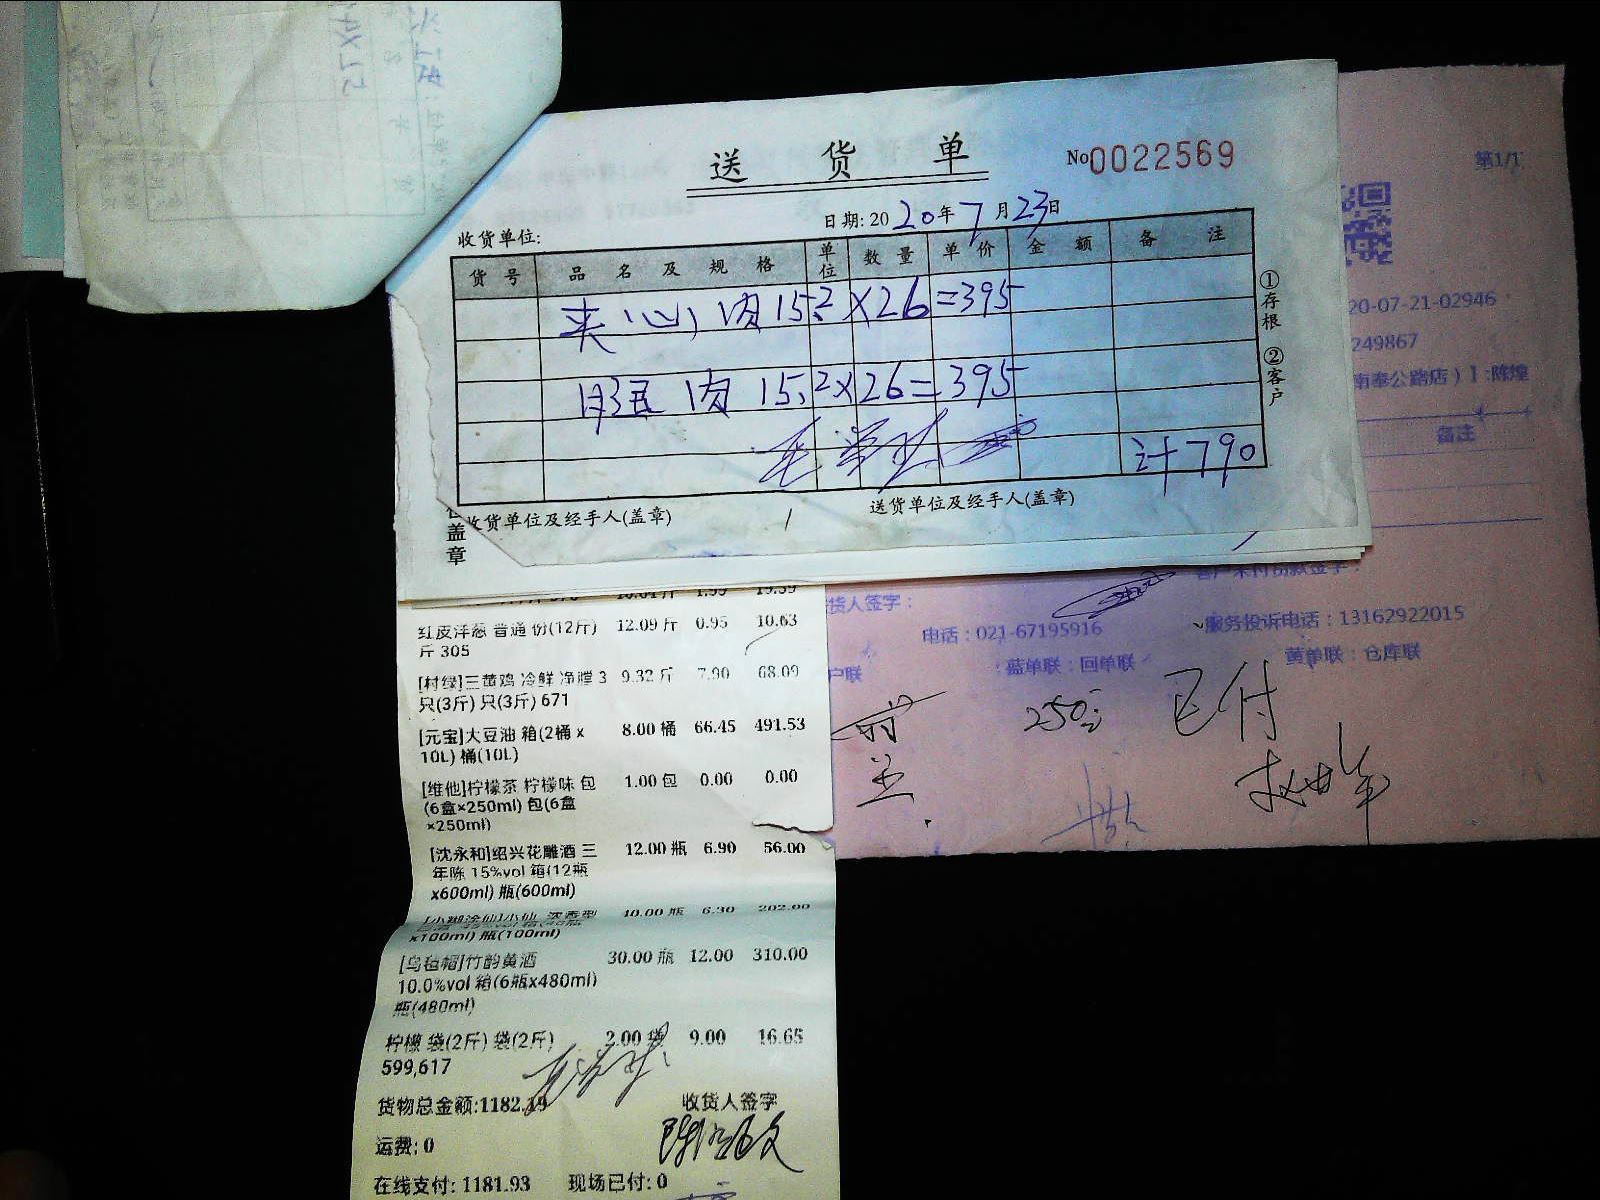 送 货 单
No 0022569
日期: 2020年7月23日
收货单位:
货 号 品 名 及 规 格 单位 数 量 单 价 金 额 备 注
夹心肉 15.2×26=395
腿肉 15.2×26=395
计790
收货单位及经手人(盖章) 送货单位及经手人(盖章)
①存根 ②客户
盖章
第1/1
20-07-21-02946
249867
南奉公路店)1:陈煌
备注
货人签字:
电话:021-67195916
服务投诉电话:13162922015
户联
蓝单联:回单联
黄单联:仓库联
250元 已付
红皮洋葱 普通 份(12斤) 12.09 斤 0.95 10.63
斤 305
[村绿]三黄鸡 冷鲜 净膛 3 9.32 斤 7.90 68.09
只(3斤) 只(3斤) 671
[元宝]大豆油 箱(2桶 x 8.00 桶 66.45 491.53
10L) 桶(10L)
[维他]柠檬茶 柠檬味 包 1.00 包 0.00 0.00
(6盒×250ml) 包(6盒
×250ml)
[沈永和]绍兴花雕酒 三 12.00 瓶 6.90 56.00
年陈 15%vol 箱(12瓶
x600ml) 瓶(600ml)
40.00 瓶 6.30 202.00
x100ml) 瓶(100ml)
[乌毡帽]竹韵黄酒 30.00 瓶 12.00 310.00
10.0%vol 箱(6瓶x480ml)
瓶(480ml)
柠檬 袋(2斤) 袋(2斤) 2.00 袋 9.00 16.65
599,617
货物总金额:1182.19 收货人签字
运费: 0
在线支付: 1181.93 现场已付: 0